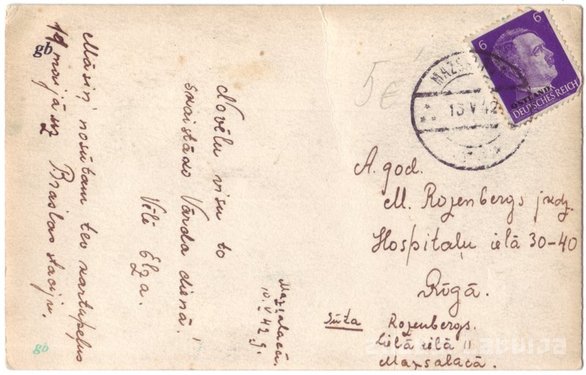 Māsiņ nosūtam tev kartupeļus
19 maijā uz Braslas staciju.
Novēlu visu to
skaistāko Vārda dienā!
Vēlē Elza.
Mazsalacā.
10.V.42 g.
5€
MAZSA
13 V 42
6 6
OSTLAND
DEUTSCHES REICH
A. god.
M. Rozenbergs jkdz.
Hospitaļu ielā 30-40
Rīgā.
Sūta Rozenbergs.
Lielā ielā 11
Mazsalacā.
gb
gb